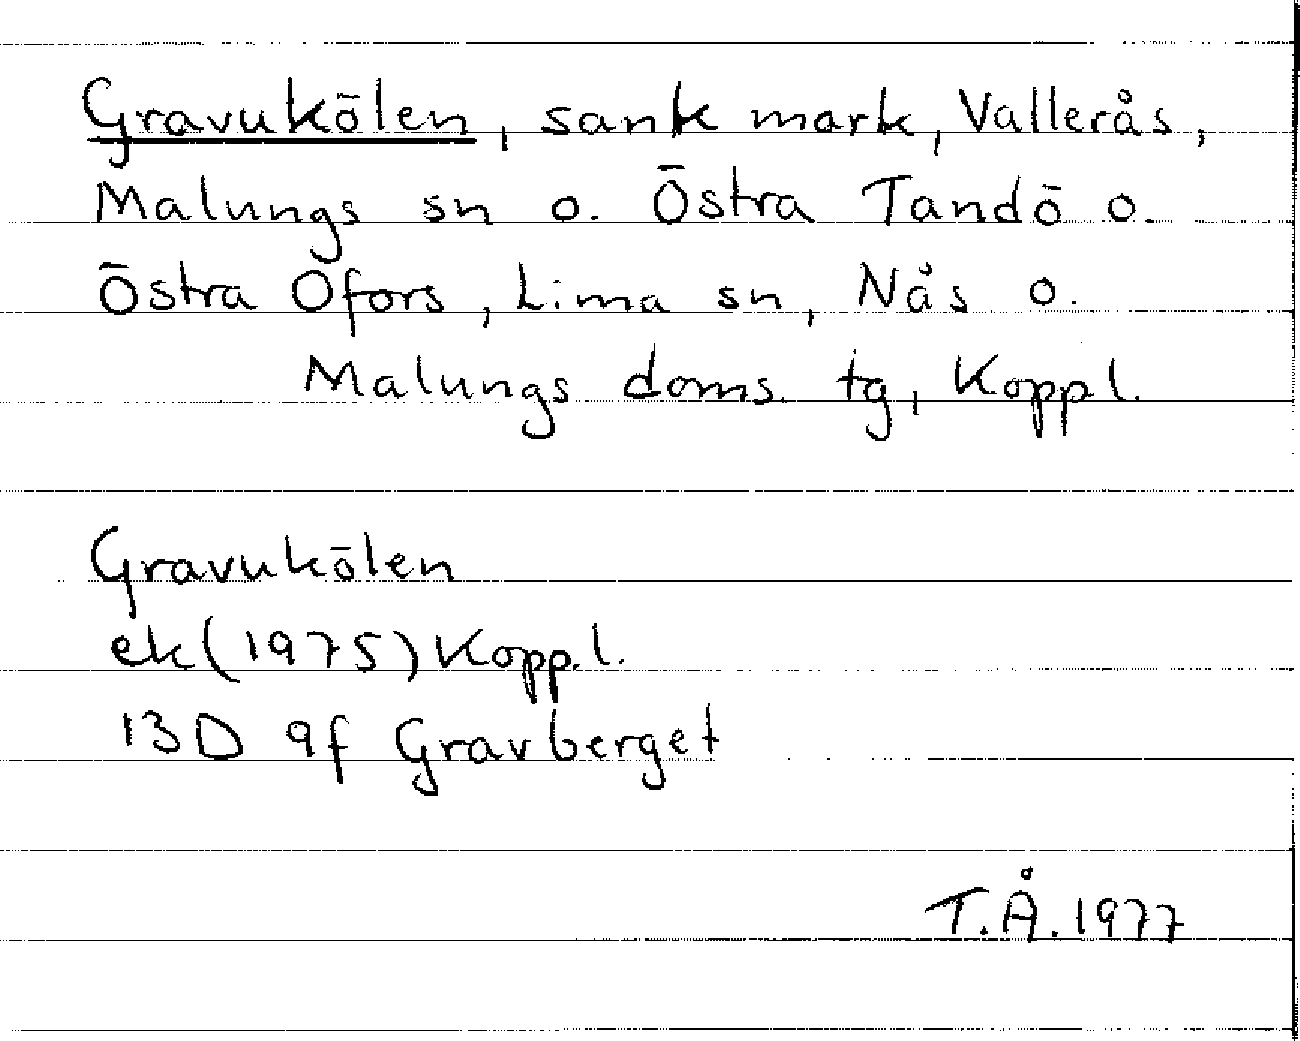 Gravukölen, sank mark, Vallerås,
Malungs sn o. Östra Tandö o.
Östra Öfors, Lima sn, Nås o.
Malungs doms. tg, Koppl.
Gravukölen
ek(1975) Kopp.l.
13D 9f Gravberget
T.Å. 1977